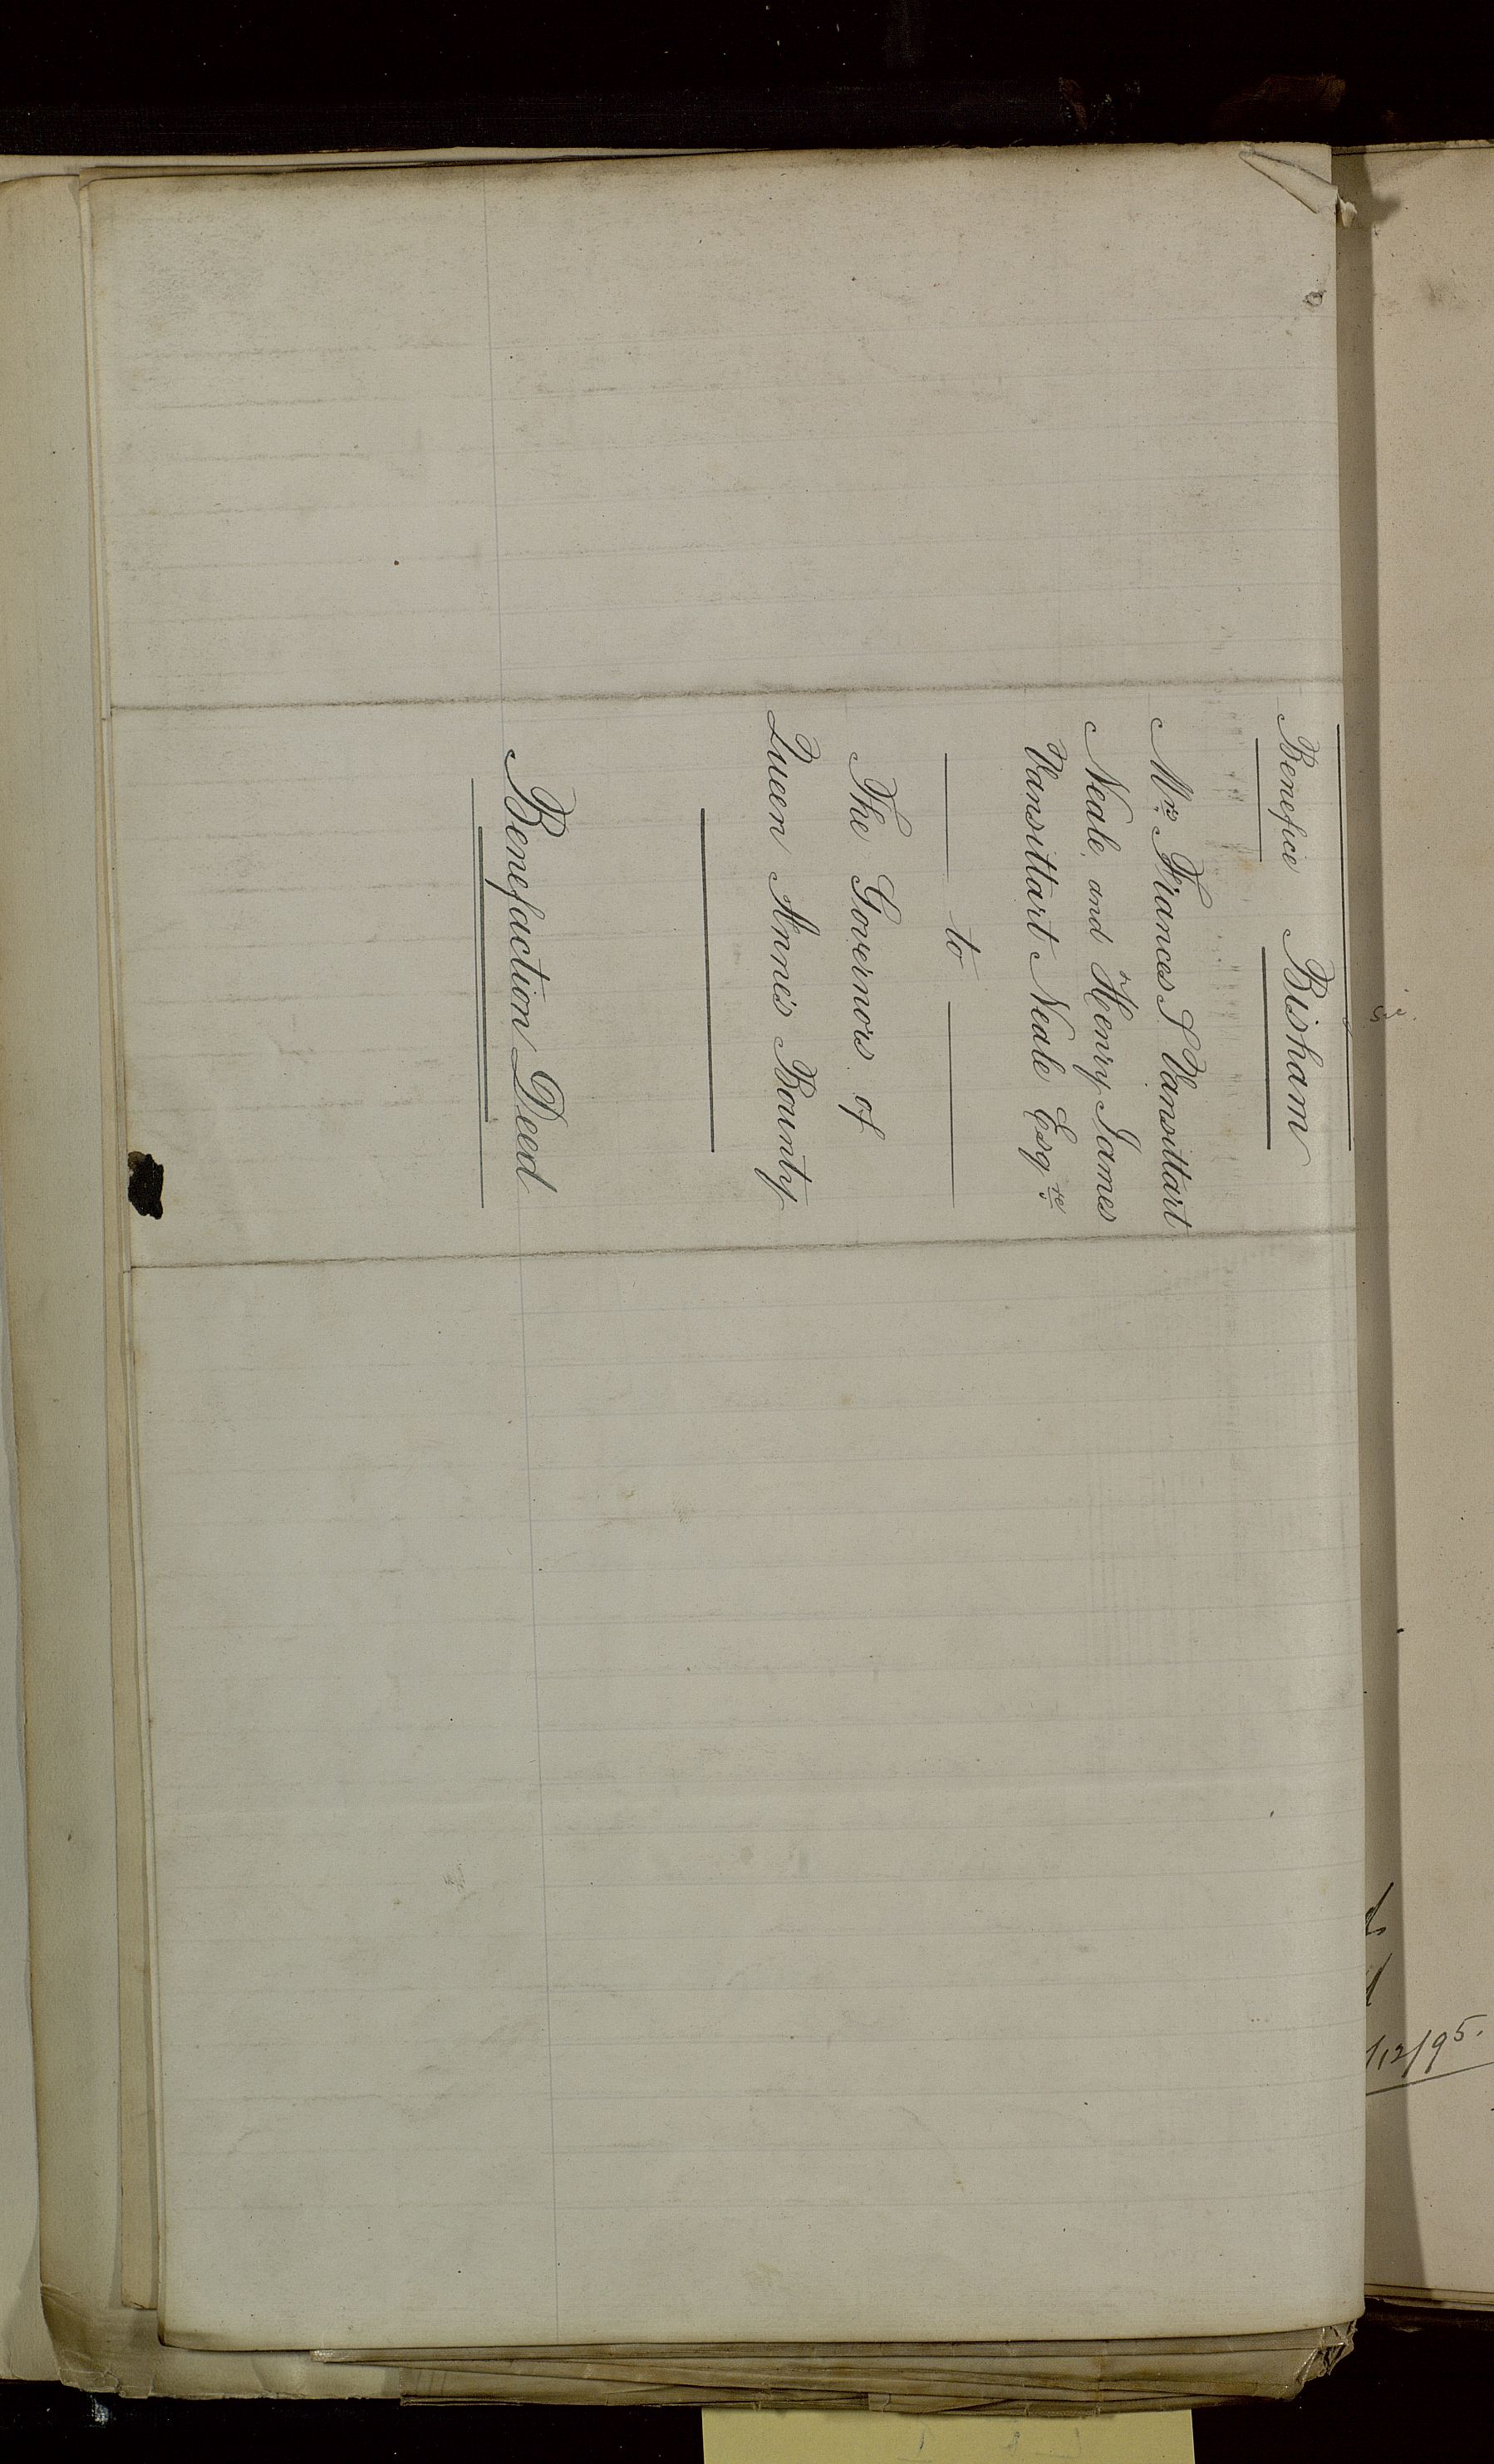 Benefice Bisham
Mrs. Frances S Vansittart
Neale, and Henry James
Vansittart Neale Esqre.
to
The Governors of
Queen Anne's Bounty
Benefaction Deed
/12/95.